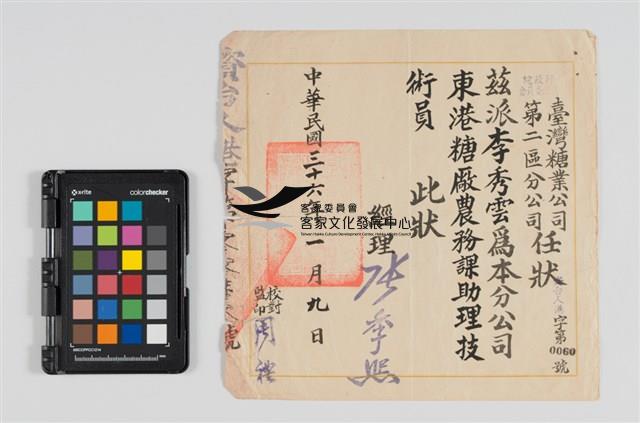 臺灣糖業公司
第二區分公司
任狀
字第
0060
號
茲派李秀雲爲本分公司
東港糖廠農務課助理技
術員
此狀
經理
張季熙
中華民國三十六年一月九日
校對
監印
客家委員會
客家文化發展中心
Taiwan Hakka Culture Development Center, Hakka Affairs Council
x-rite
colorchecker